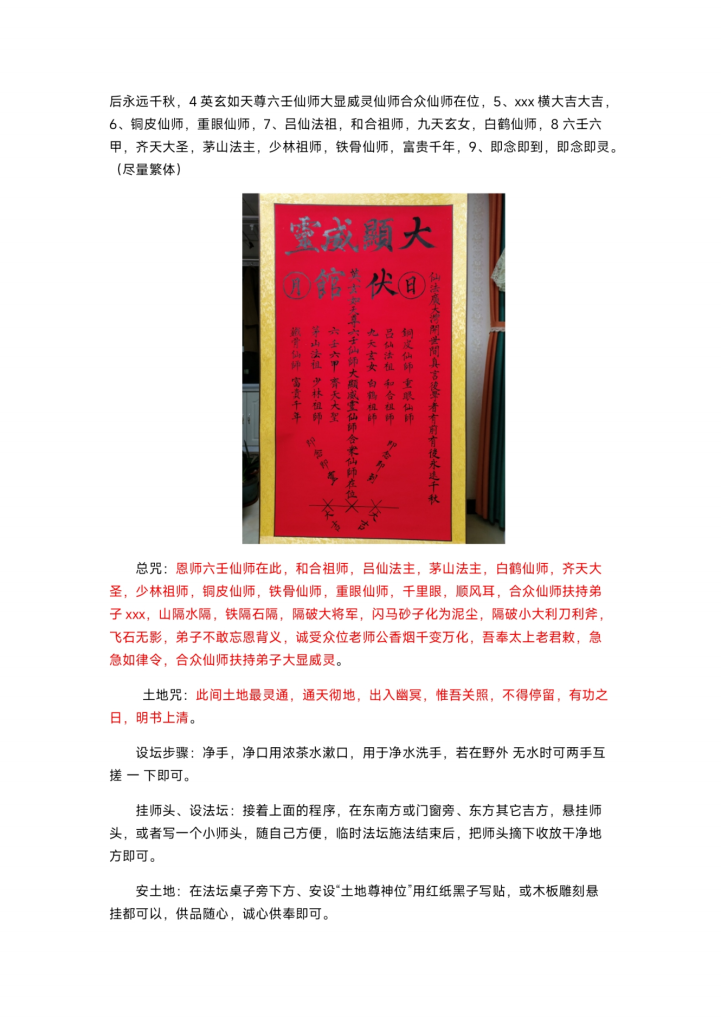 后永远千秋，4 英玄如天尊六壬仙师大显威灵仙师合众仙师在位，5、xxx 横大吉大吉，
6、铜皮仙师，重眼仙师，7、吕仙法祖，和合祖师，九天玄女，白鹤仙师，8 六壬六
甲，齐天大圣，茅山法主，少林祖师，铁骨仙师，富贵千年，9、即念即到，即念即灵。
（尽量繁体）
大顯威靈
日伏
館月
仙法廣大
銅皮仙師 重眼仙師
呂仙法祖 和合祖師
九天玄女 白鶴祖師
六壬仙師大顯威靈仙師合衆仙師在位
六壬六甲 齊天大聖
茅山法祖 少林祖師
鐵骨仙師 富貴千年
总咒：恩师六壬仙师在此，和合祖师，吕仙法主，茅山法主，白鹤仙师，齐天大
圣，少林祖师，铜皮仙师，铁骨仙师，重眼仙师，千里眼，顺风耳，合众仙师扶持弟
子 xxx，山隔水隔，铁隔石隔，隔破大将军，闪马砂子化为泥尘，隔破小大利刀利斧，
飞石无影，弟子不敢忘恩背义，诚受众位老师公香烟千变万化，吾奉太上老君敕，急
急如律令，合众仙师扶持弟子大显威灵。
土地咒：此间土地最灵通，通天彻地，出入幽冥，惟吾关照，不得停留，有功之
日，明书上清。
设坛步骤：净手，净口用浓茶水漱口，用于净水洗手，若在野外 无水时可两手互
搓 一 下即可。
挂师头、设法坛：接着上面的程序，在东南方或门窗旁、东方其它吉方，悬挂师
头，或者写一个小师头，随自己方便，临时法坛施法结束后，把师头摘下收放干净地
方即可。
安土地：在法坛桌子旁下方、安设“土地尊神位”用红纸黑子写贴，或木板雕刻悬
挂都可以，供品随心，诚心供奉即可。